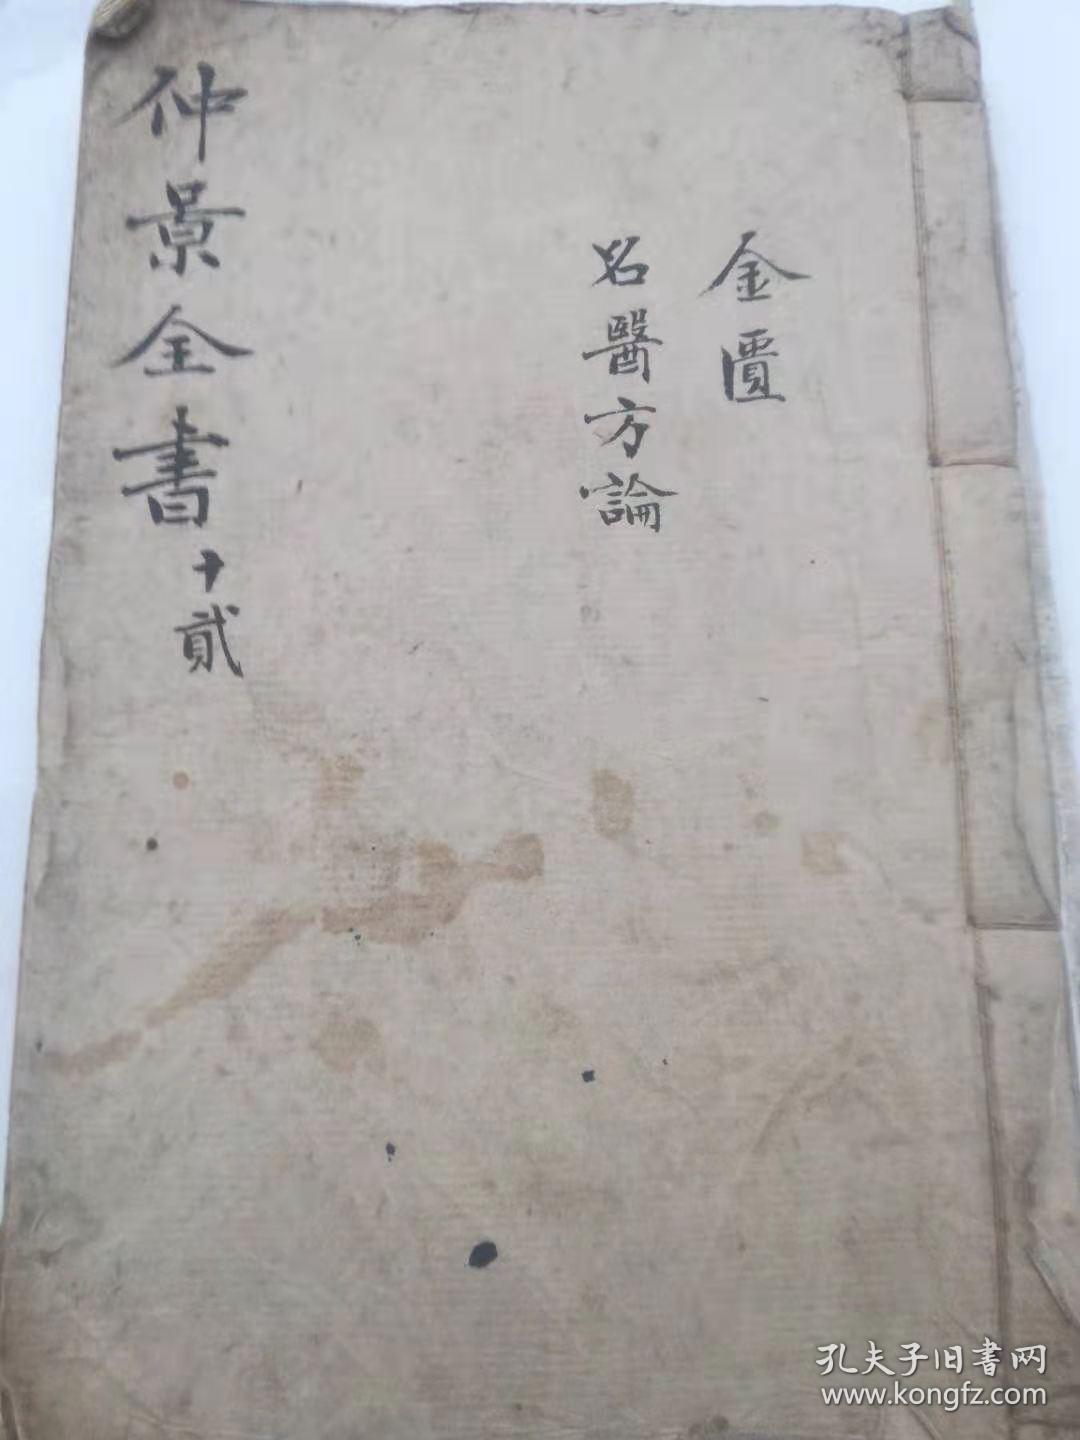 金匱
名醫方論
仲景全書十貳
孔夫子旧書网
www.kongfz.com